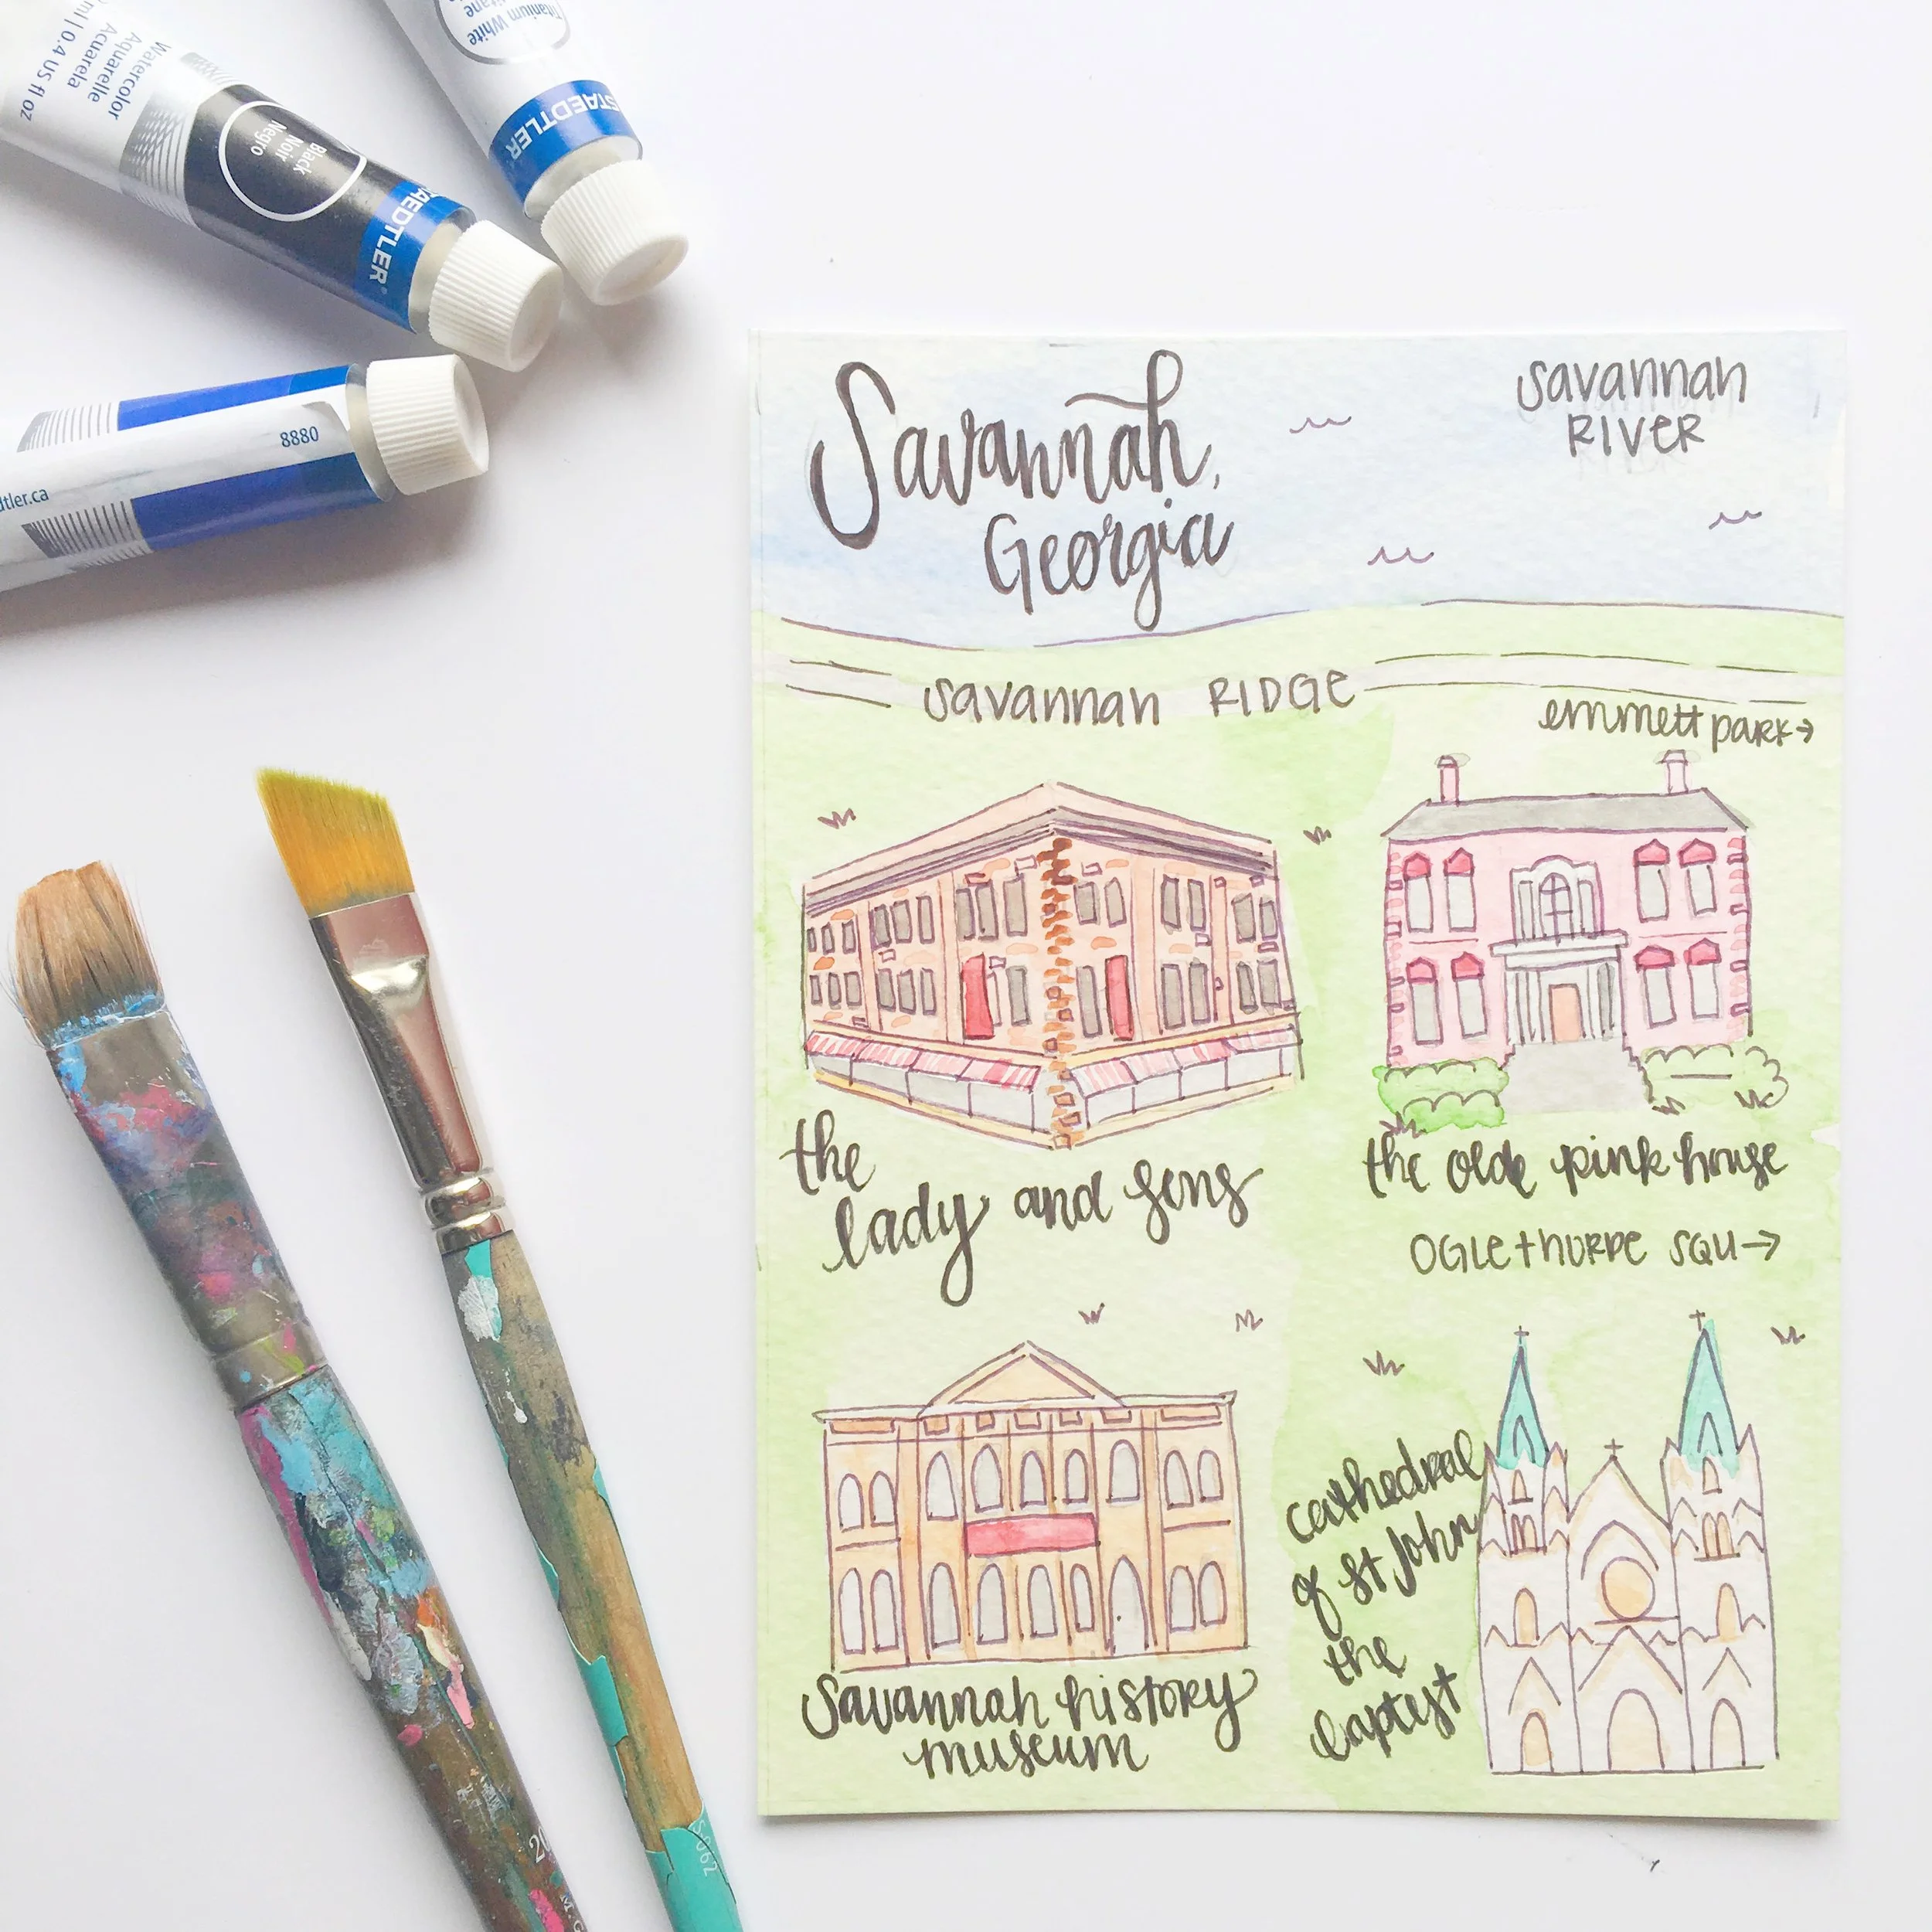 Titanium White
STAEDTLER
Watercolor
Aquarelle
Acuarela
ml | 0.4 US fl oz
Black
Noir
Negro
STAEDTLER
8880
dtler.ca
Savannah,
Georgia
savannah
RIVER
savannah RIDGE
emmett park→
the
lady and sons
the olde pink house
OGLEthORPE SQU→
Savannah history
museum
cathedral
of st John
the
baptist